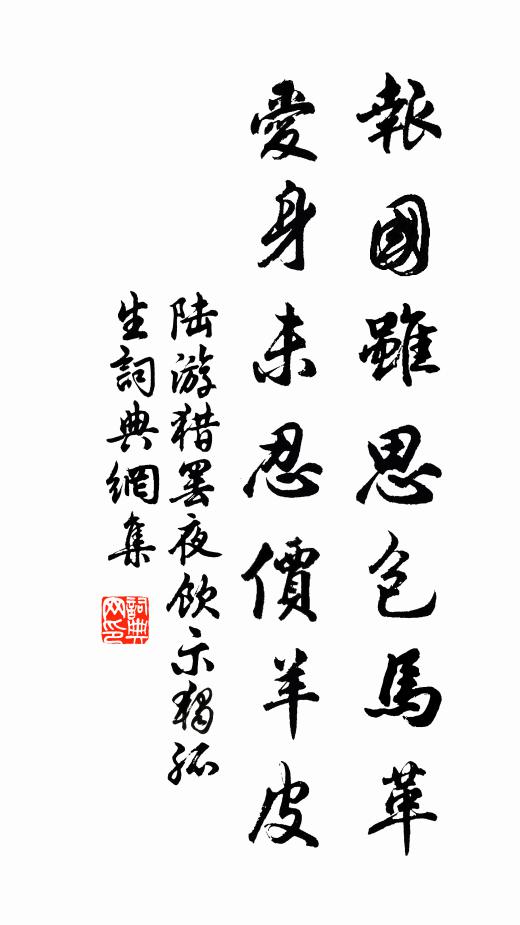 報國雖思包馬革
愛身未忍價羊皮
陆游猎罢夜飲示獨孤
生詞典網集
詞典
网印